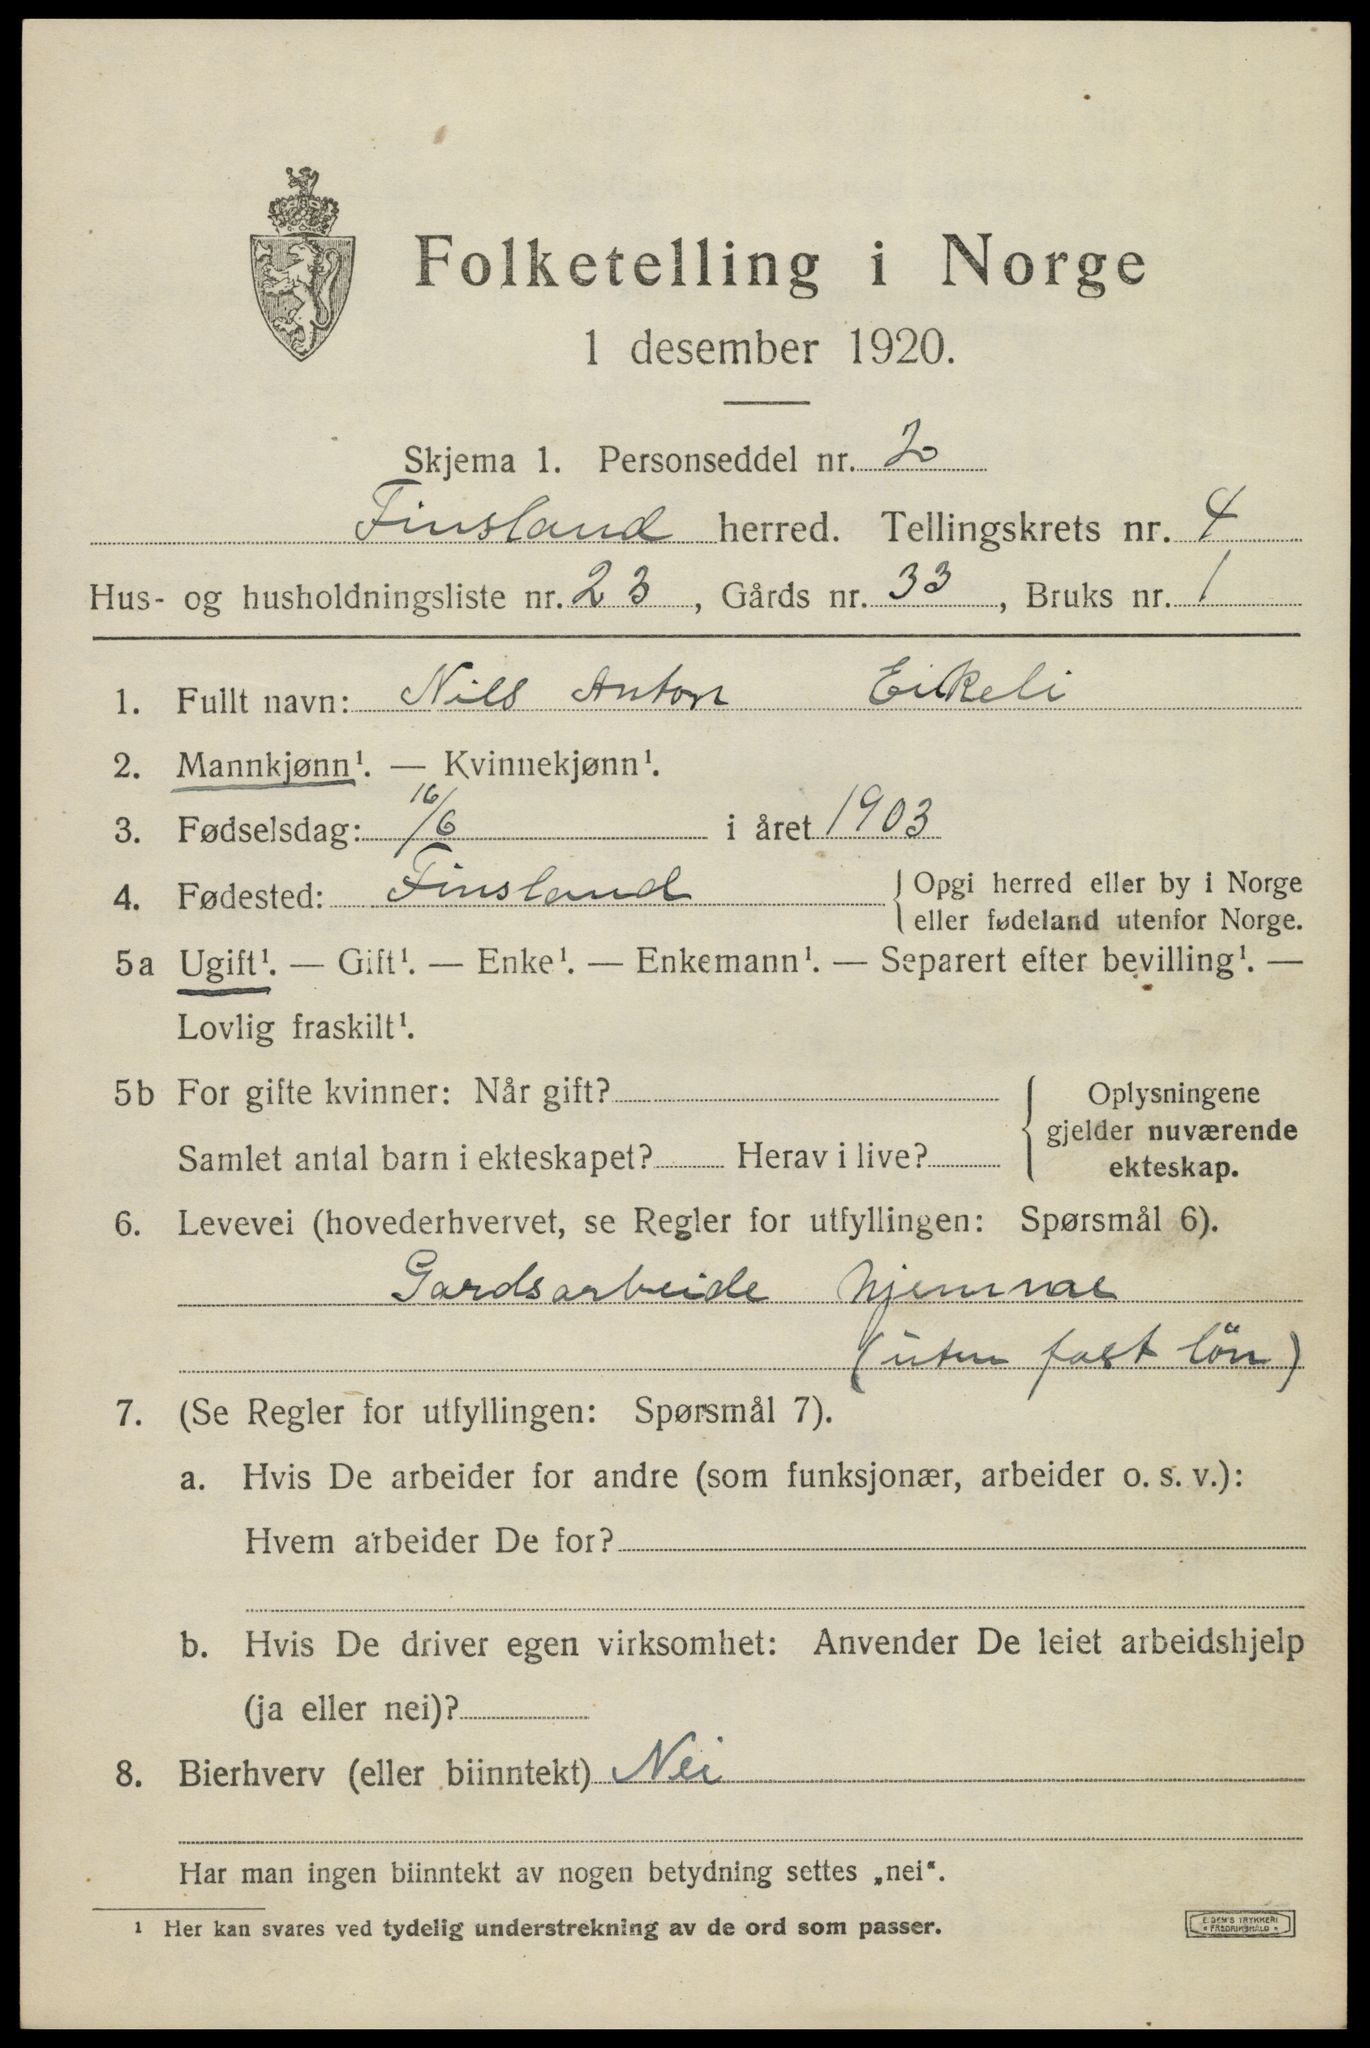 Folketelling i Norge
1 desember 1920.
Skjema 1. Personseddel nr. 2
Finsland herred. Tellingskrets nr. 4
Hus- og husholdningsliste nr. 23, Gårds nr. 33, Bruks nr. 1
1. Fullt navn: Nils Anton Eikeli
2. Mannkjønn¹. — Kvinnekjønn¹.
3. Fødselsdag: 16/6 i året 1903
4. Fødested: Finsland { Opgi herred eller by i Norge
eller fødeland utenfor Norge.
5a Ugift¹. — Gift¹. — Enke¹. — Enkemann¹. — Separert efter bevilling¹. —
Lovlig fraskilt¹.
5b For gifte kvinner: Når gift? { Oplysningene
gjelder nuværende
Samlet antal barn i ekteskapet? Herav i live?
ekteskap.
6. Levevei (hovederhvervet, se Regler for utfyllingen: Spørsmål 6).
Gardsarbeide hjemme
(uten fast lön)
7. (Se Regler for utfyllingen: Spørsmål 7).
a. Hvis De arbeider for andre (som funksjonær, arbeider o. s. v.):
Hvem arbeider De for?
b. Hvis De driver egen virksomhet: Anvender De leiet arbeidshjelp
(ja eller nei)?
8. Bierhverv (eller biinntekt) Nei
Har man ingen biinntekt av nogen betydning settes „nei“.
¹ Her kan svares ved tydelig understrekning av de ord som passer.
E. SEM'S TRYKKERI
FREDRIKSHALD